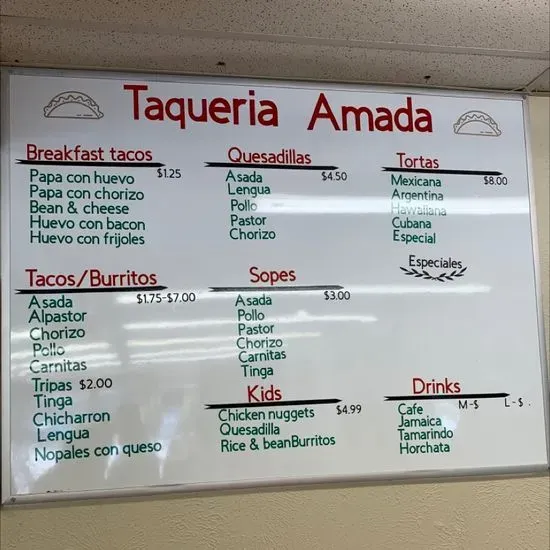 Taqueria Amada
Breakfast tacos $1.25
Papa con huevo
Papa con chorizo
Bean & cheese
Huevo con bacon
Huevo con frijoles
Quesadillas $4.50
Asada
Lengua
Pollo
Pastor
Chorizo
Tortas $8.00
Mexicana
Argentina
Hawaiiana
Cubana
Especial
Especiales
Tacos/Burritos $1.75-$7.00
Asada
Alpastor
Chorizo
Pollo
Carnitas
Tripas $2.00
Tinga
Chicharron
Lengua
Nopales con queso
Sopes $3.00
Asada
Pollo
Pastor
Chorizo
Carnitas
Tinga
Kids $4.99
Chicken nuggets
Quesadilla
Rice & beanBurritos
Drinks
M-$ L-$ .
Cafe
Jamaica
Tamarindo
Horchata